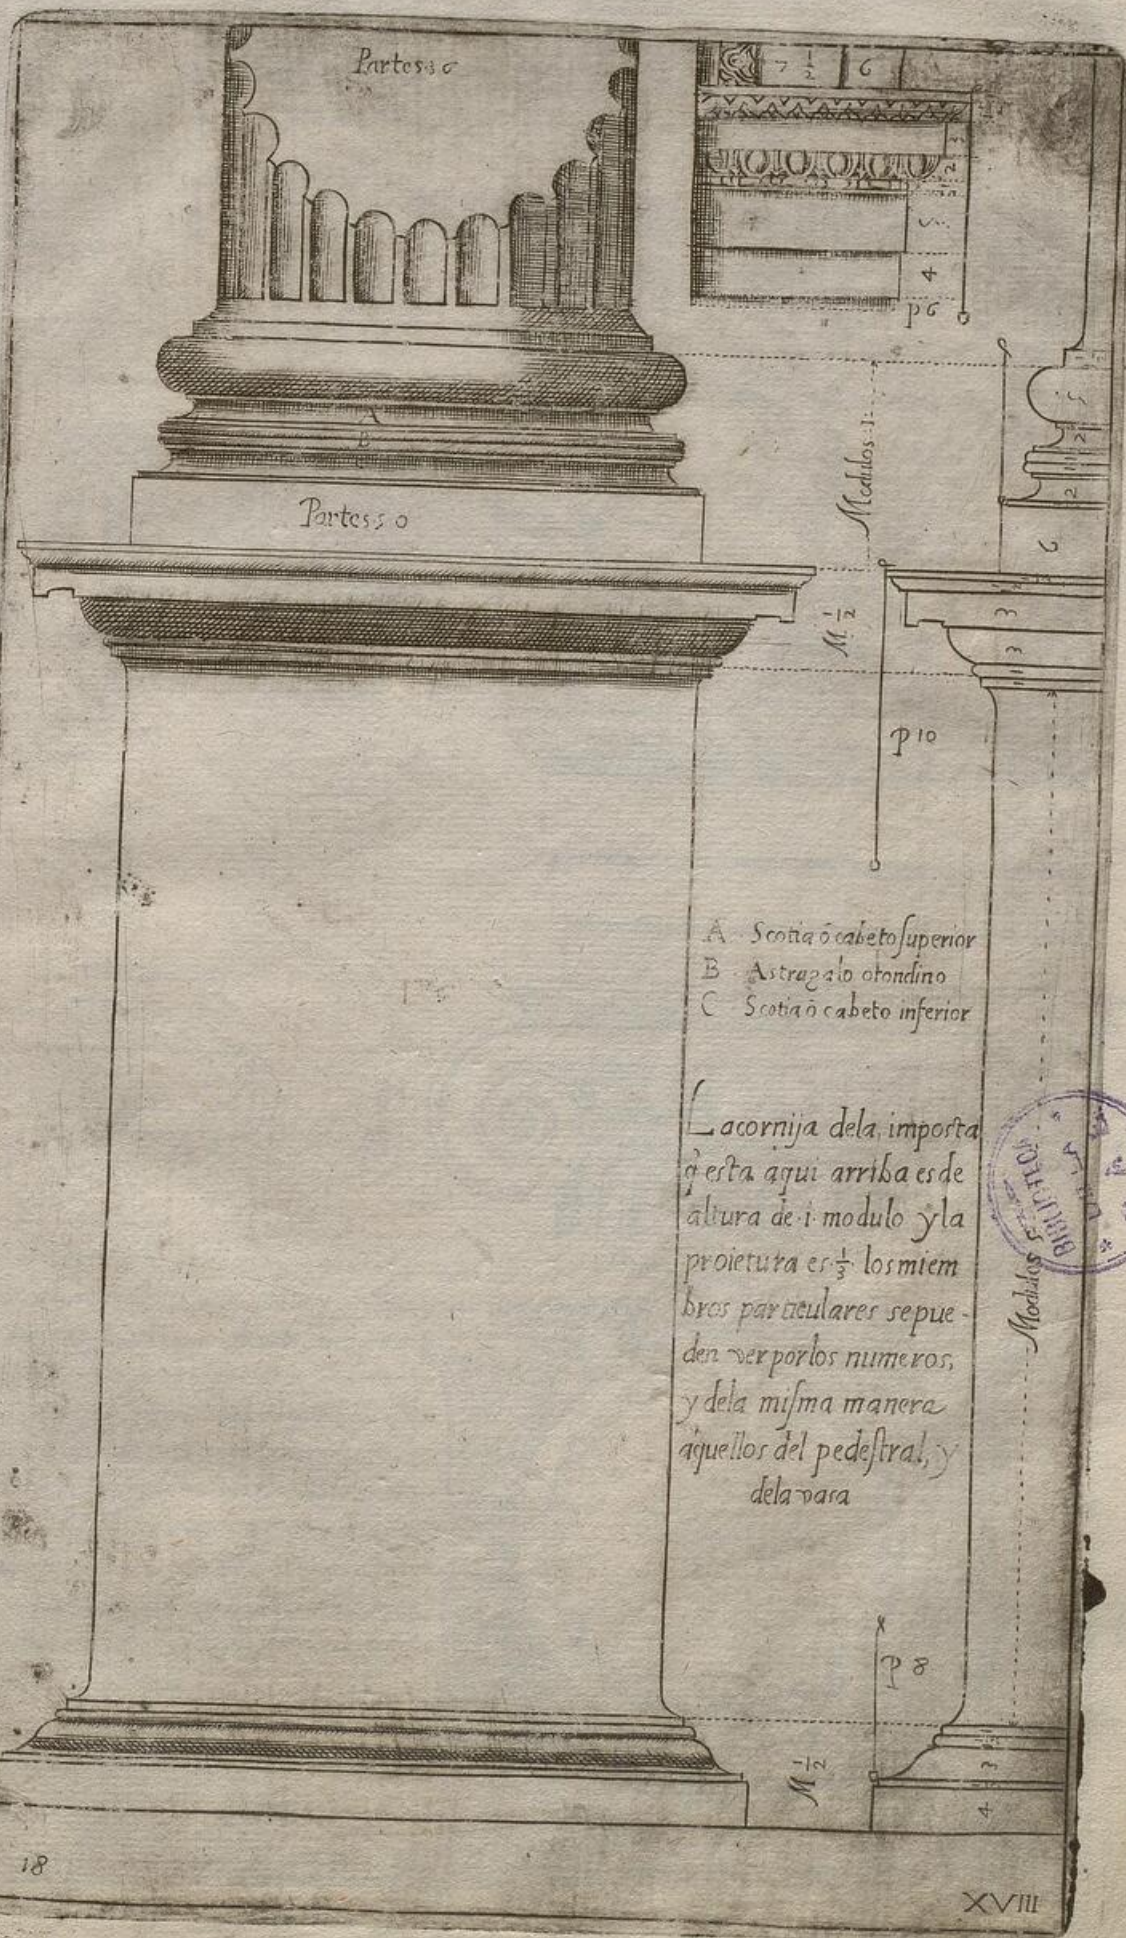 Partes 36
7 1/2 6
4
p 6
A
B
Modulos 1
Partes 50
6
M 1/2
3
3
p 10
A Scotia ó cabeto ſuperior
B Astragalo otondino
C Scotia ó cabeto inferior
La cornija dela imposta
q̃ esta aqui arriba es de
altura de ·i· modulo y la
proietura es 1/3· los miem
bros particulares se pue-
den ver por los numeros,
y dela miſma manera
aquellos del pedeſtral, y
dela vasa
Modulos 5
BIBLIOTECA
P 8
M 1/2
3
4
18
XVIII